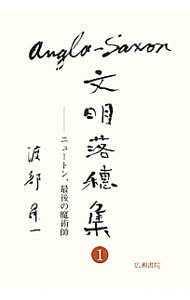 Anglo-Saxon
文明落穂集
――ニュートン、最後の魔術師
渡部昇一
1
広瀬書院